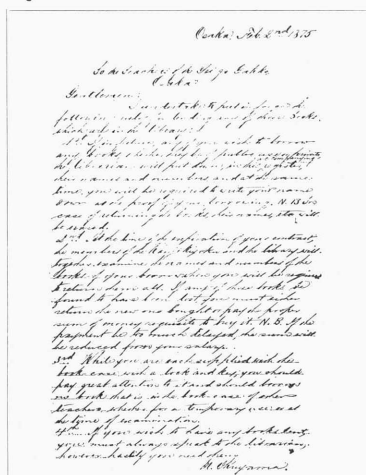 Osaka, Feb. 2nd 1875
To the Teachers of the
Osaka.
Gentlemen:
I undertake to put in force the
following rules, in lending any of these books,
which are in the library:
1st. If in future, any of you wish to borrow
any books, whether they be public
the librarian will put down, in the register,
their names and numbers and at the same
time, you will be required to write your name
down as the proof of your borrowing. N.B. In
case of returning the books, their names, etc. will
be erased.
2nd. At the time of the expiration of your contract,
the members of the and the library will
together examine the names and numbers of the
books of your borrow when you will be require
to return them all. If any of these books be
found to have been lost you must either
return the new one bought or pay the proper
sum of money requisite to buy it. N.B. If the
payment be too much delayed, the sum will
be reduced from your salary.
3rd. While you are each supplied with the
book case with a lock and key, you should
pay great attention to it and should borrow
no book that is in the book case of other
teachers, whether for a temporary use or at
the time of examination.
4th. If you wish to have any books lent,
you must always speak to the librarian,
however hastily you need them.